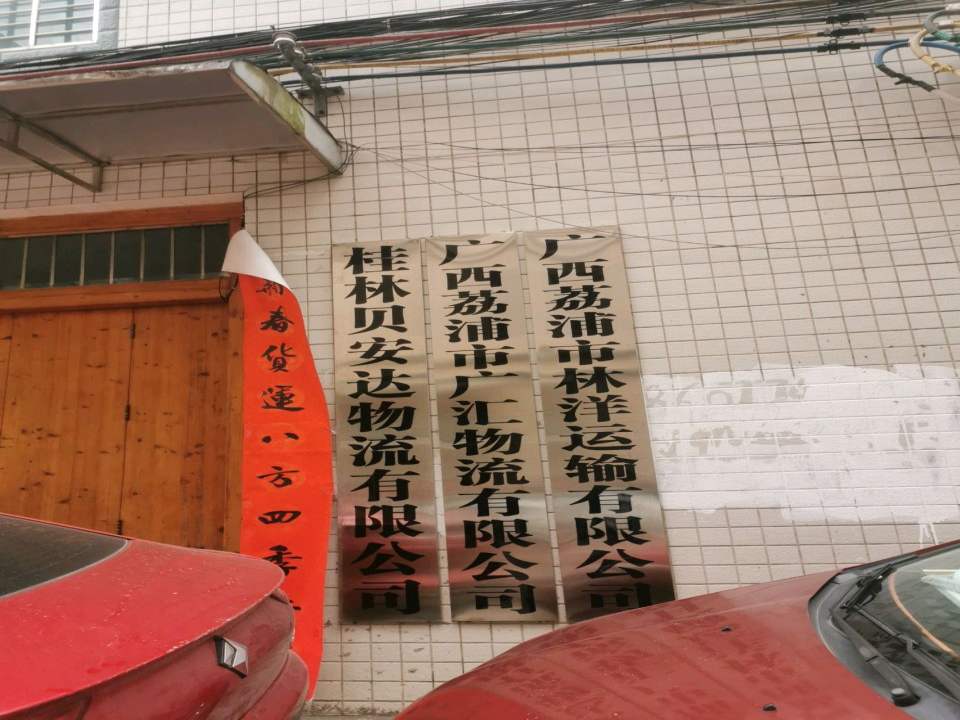 新春货運八方四季
桂林贝安达物流有限公司
广西荔浦市广汇物流有限公司
广西荔浦市林洋运输有限公司